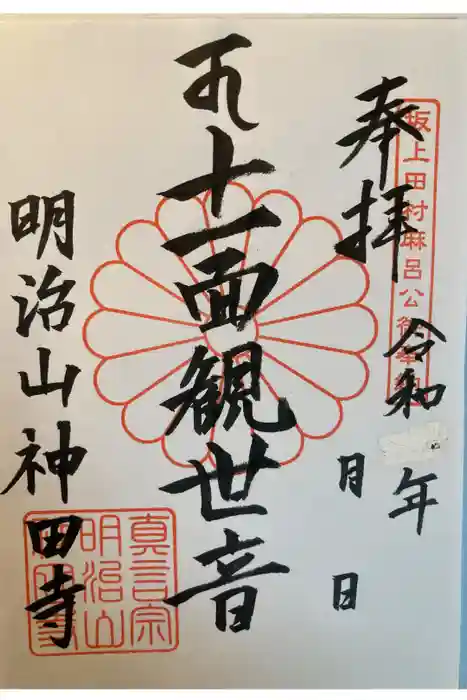 坂上田村麻呂公
奉拝
令和 年
月 日
十一面観世音
明治山神田寺
真言宗
明治山